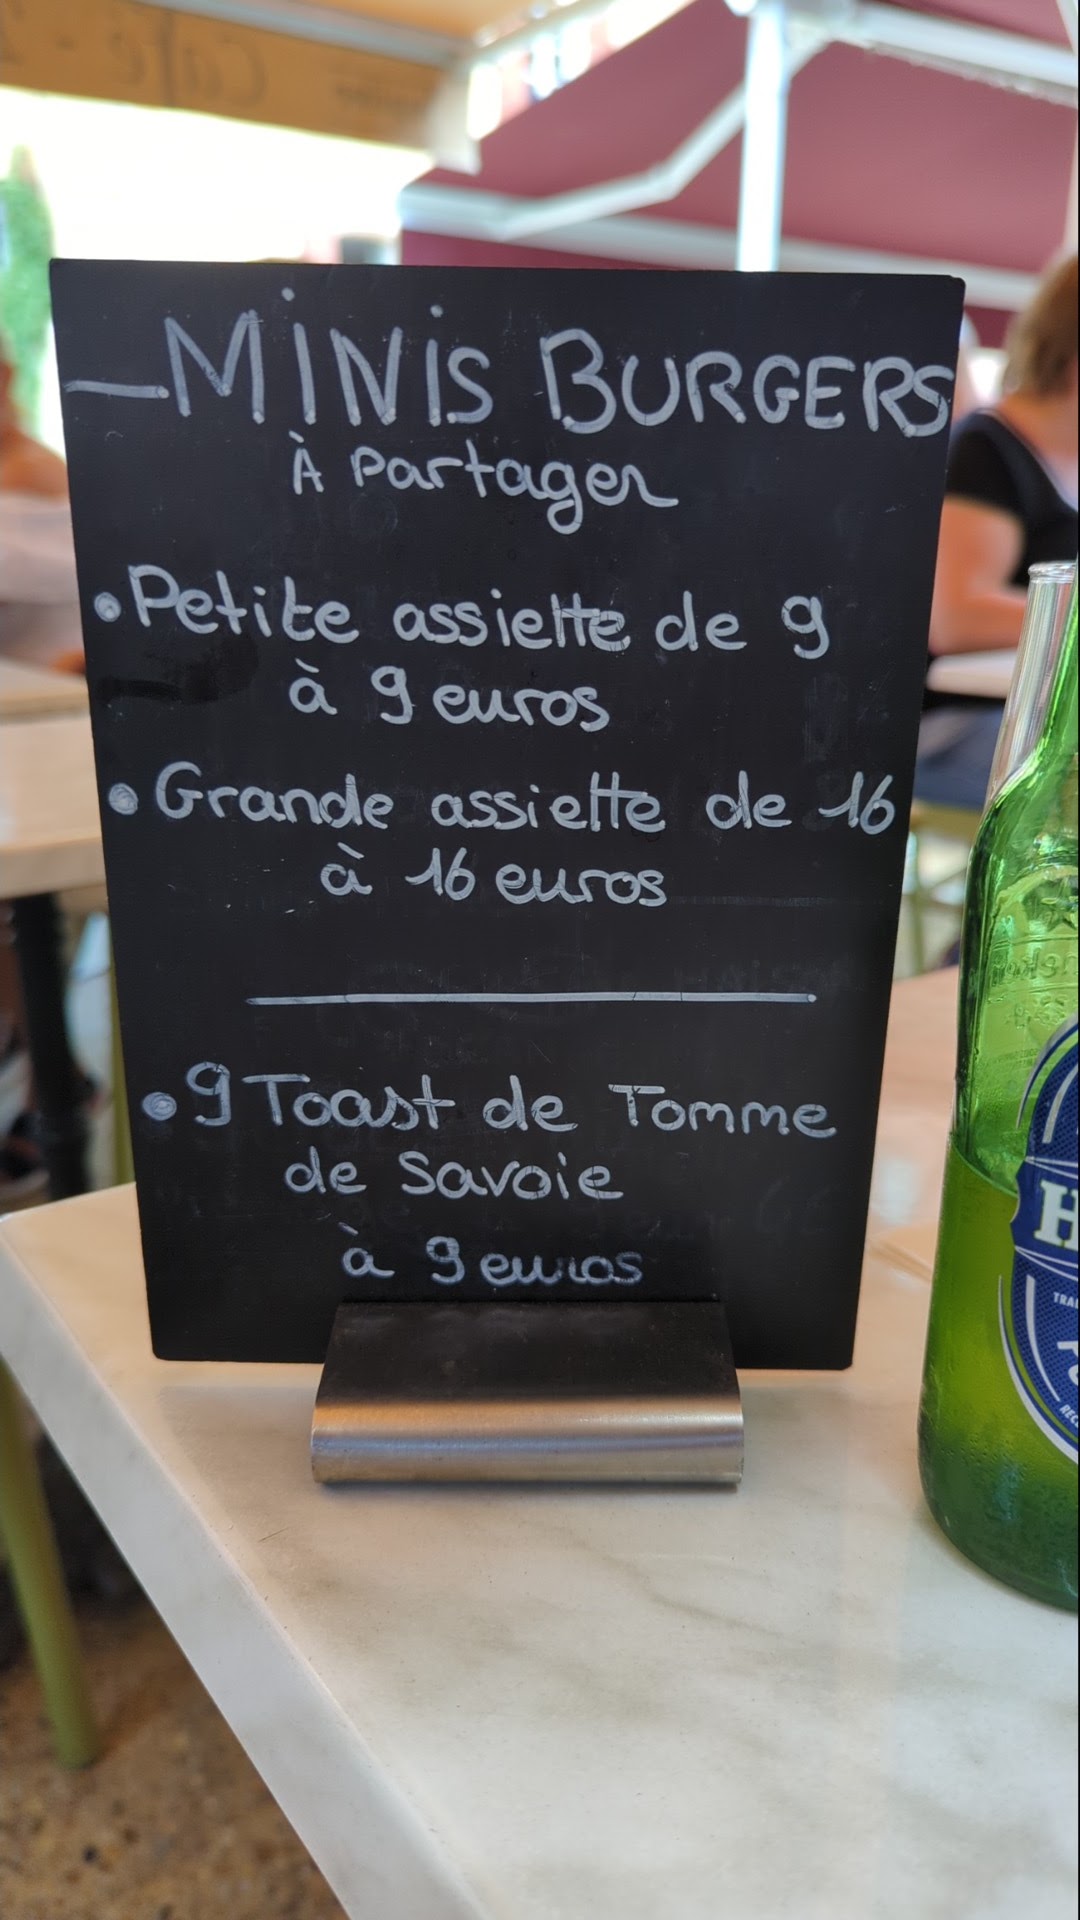 Café
— MINIS BURGERS
À Partager
• Petite assiette de 9
à 9 euros
• Grande assiette de 16
à 16 euros
• 9 Toast de Tomme
de Savoie
à 9 euros
H
TRA
REC